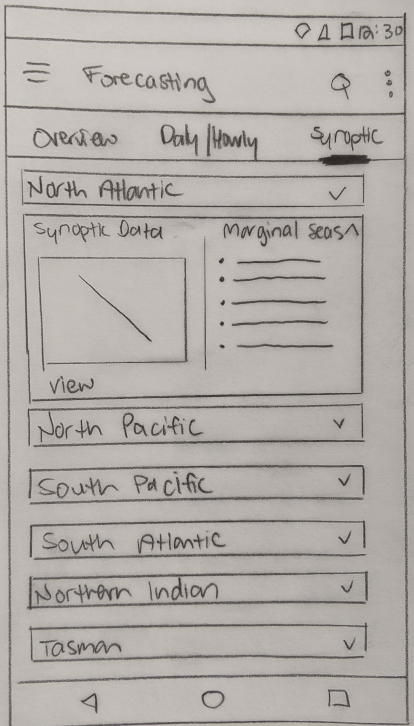 12:30
Forecasting
Overview Daily/Hourly Synoptic
North Atlantic
Synoptic Data Marginal Seas
view
North Pacific
South Pacific
South Atlantic
Northern Indian
Tasman